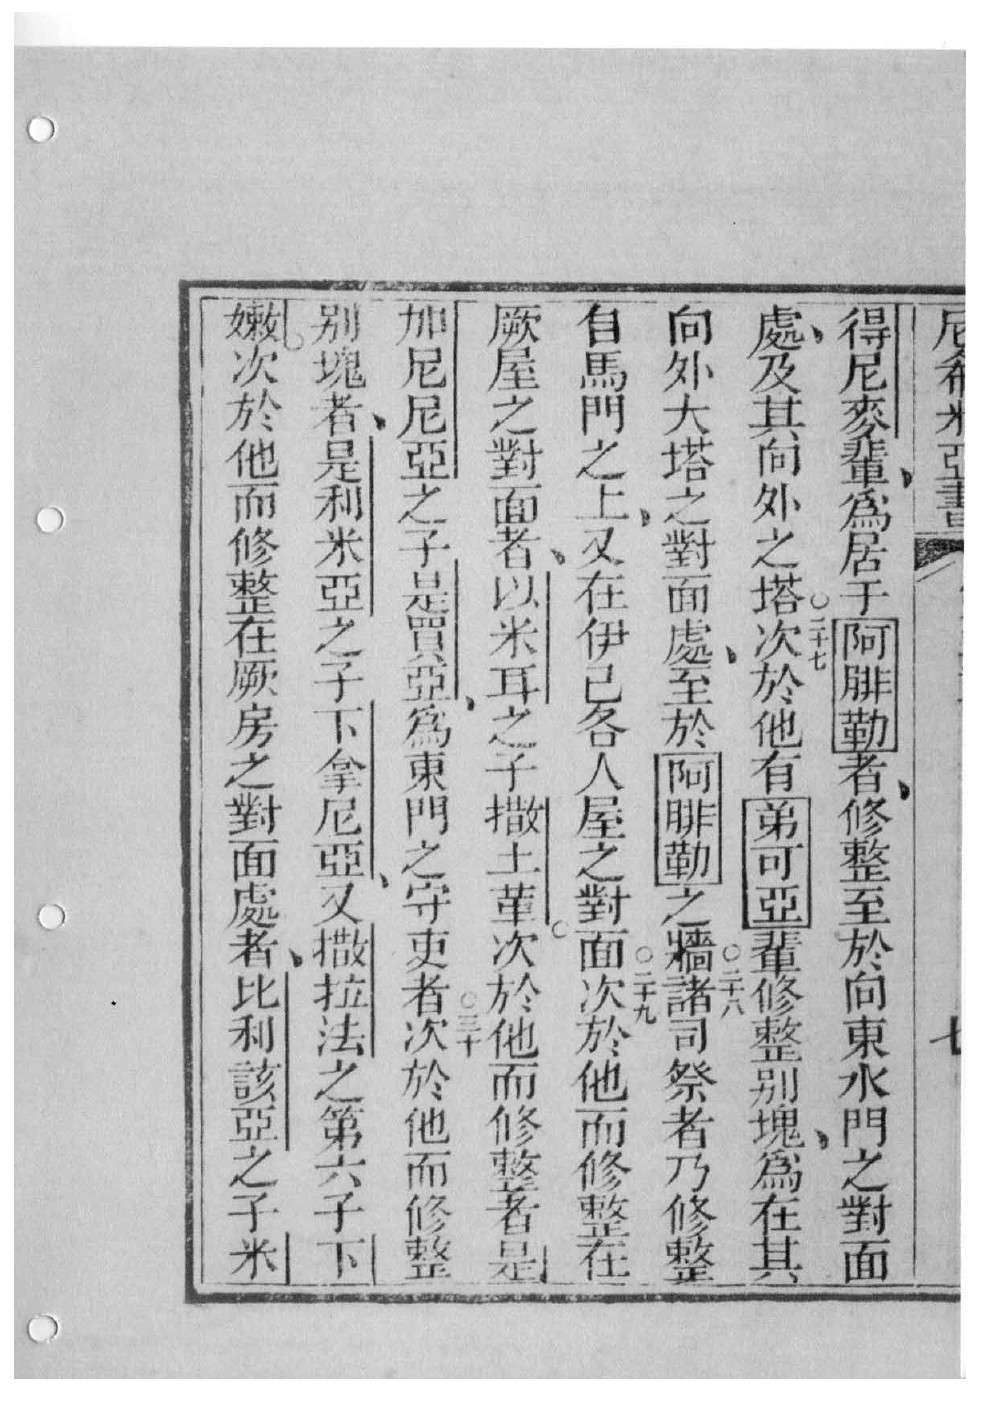 尼希米亞書 七
得尼麥輩爲居于阿腓勒者修整至於向東水門之對面
處及其向外之塔○二十七次於他有弟可亞輩修整别塊爲在其
向外大塔之對面處至於阿腓勒之牆○二十八諸司祭者乃修整
自馬門之上又在伊己各人屋之對面○二十九次於他而修整在
厥屋之對面者以米耳之子撒土革次於他而修整者是
加尼尼亞之子是買亞爲東門之守吏者○三十次於他而修整
别塊者是利米亞之子下拿尼亞又撒拉法之第六子下
嫩次於他而修整在厥房之對面處者比利該亞之子米